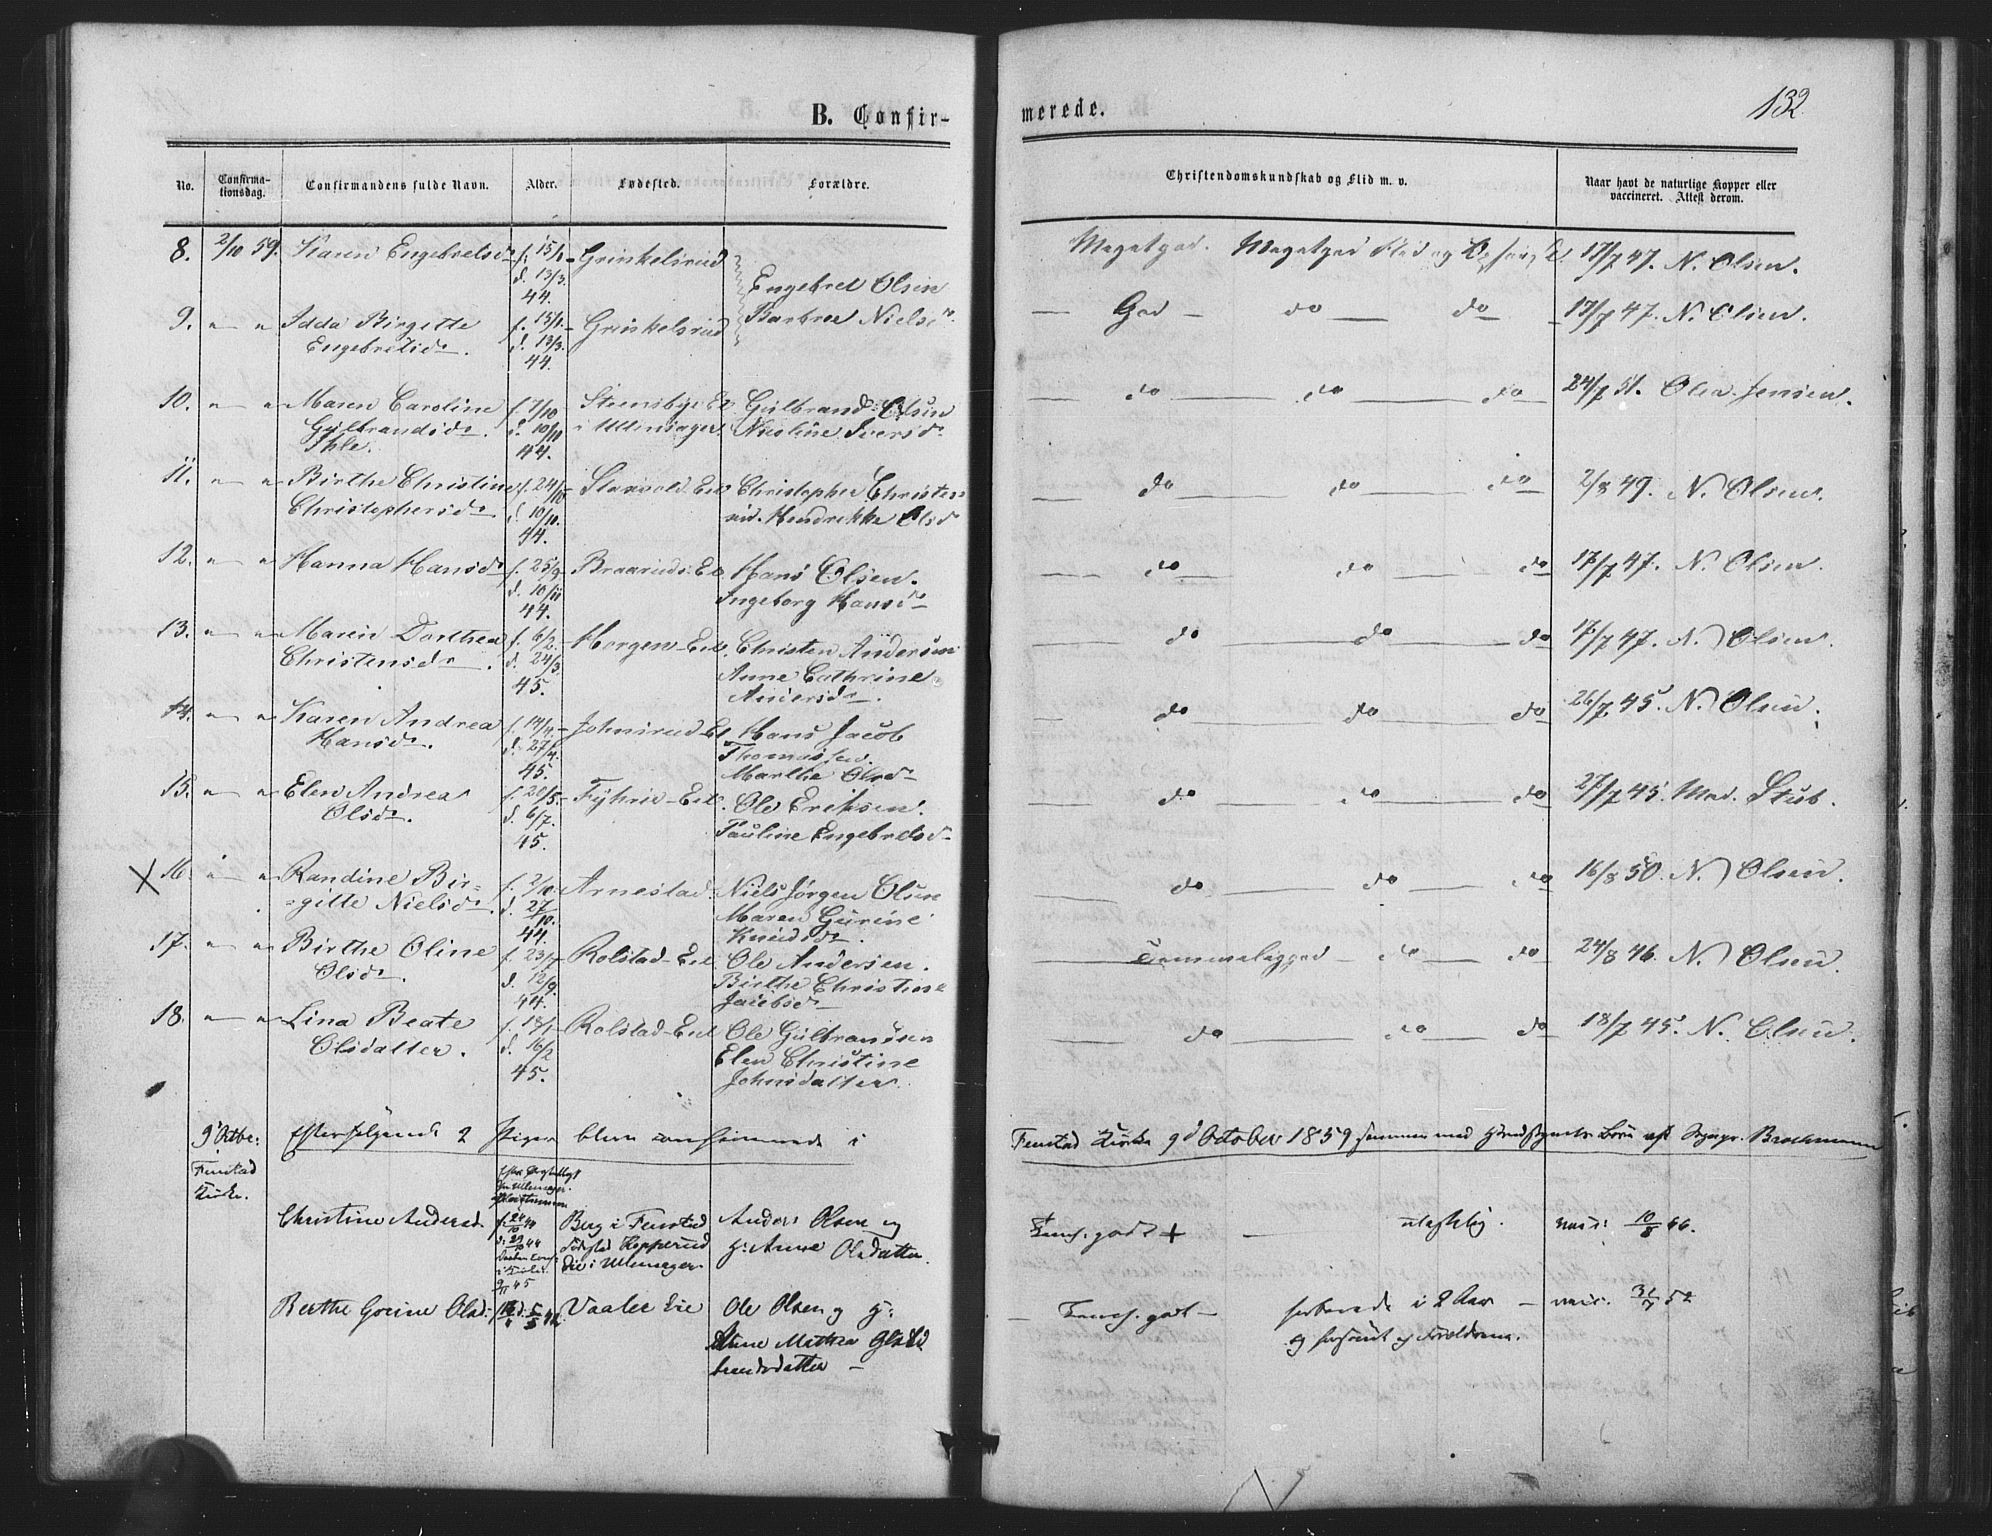 B. Confir-
merede.
132
No.
Confirma-
tionsdag.
Confirmandens fulde Navn.
Alder.
Fødested.
Forældre.
Christendomskundskab og Flid m. v.
Naar havt de naturlige Kopper eller
vaccineret. Attest derom.
8. 2/10 59. Karen Engebretsd. f. 15/1 Grinkelsrud Megetgod. Megetgod Flid og 17/7 47. N. Olsen.
d. 13/3. Engebret Olsen
44. Barbroe Nielsd.
9. " " Idda Birgitte f. 15/1. Grinkelsrud God do do 17/7 47. N. Olsen.
Engebretsd. d. 13/3.
44.
10. " " Maren Caroline f. 7/10 Steensbye Ei. Gulbrand Olsen do do do 24/7 51. Olea Jensen.
Gulbrandsd. d. 10/11 i Ullinsager. Nicoline Iversd.
Ihle. 44.
11. " " Birthe Christine f. 24/10 Christopher Christen do do do 2/8 49. N. Olsen.
Christophersd. d. 10/11. Hendrikke Olsd
44.
12. " " Hanna Hansd. f. 25/9 Braaruds-Ei. Hans Olsen. do do do 17/7 47. N. Olsen.
d. 10/11 Ingeborg Hansd.
44.
13. " " Maren Dorthea f. 6/2. Horgen-Eie. Christen Andersen do do do 17/7 47. N. Olsen.
Christensd. d. 24/3 Anne Cathrine
45. Andersd.
14. " " Karen Andrea f. 14/4. Johnsrud-Ei Hans Jacob do do do 26/7 45. N. Olsen.
Hansd. d. 27/4. Thomassen.
45. Marthe Olsd.
15. " " Elen Andrea f. 20/5. Ole Eriksen. do do do 27/7 45. Mad. Stub.
Olsd. d. 6/7. Pauline Engebretsd.
45.
X 16. " " Randine Bir- f. 2/10. Arnestad. Niels Jørgen Olsen do do do 16/8 50. N. Olsen.
-gitte Nielsd. d. 27/10. Maren Gurine
44. Knudsd.
17. " " Birthe Oline f. 23/7 Rolstad-Eie Ole Andersen. Temmeliggod do do 24/8 46. N. Olsen.
Olsd. d. 12/9. Birthe Christine
44. Jacobsd.
18. " " Lina Beate f. 18/1 Rolstad-Eie Ole Gulbrandsen do do do 18/7 45. N. Olsen.
Olsdatter. d. 16/2 Elen Christine
45. Johnsdatter.
9 Octbr: Efterfølgende 2 Piger bleve confirmerede i Fenstad Kirke 9d October 1859 sammen med Børn af Sognepr. Brochmann
Fenstad
Kirke.
Christine Andersd. f. 24/10 44 Berg i Fenstad Anders Olsen og god + 10/8 46.
d. 29/ 44 Fødested Hopperud h: Anne Olsdatter.
Eie i Ullensager
Berthe Gorine Olsd: Vaaler Eie Ole Olsen og h: godt i 2 Aar 31/7 52
Anne Mathea
brandsdatter og Forældrene.